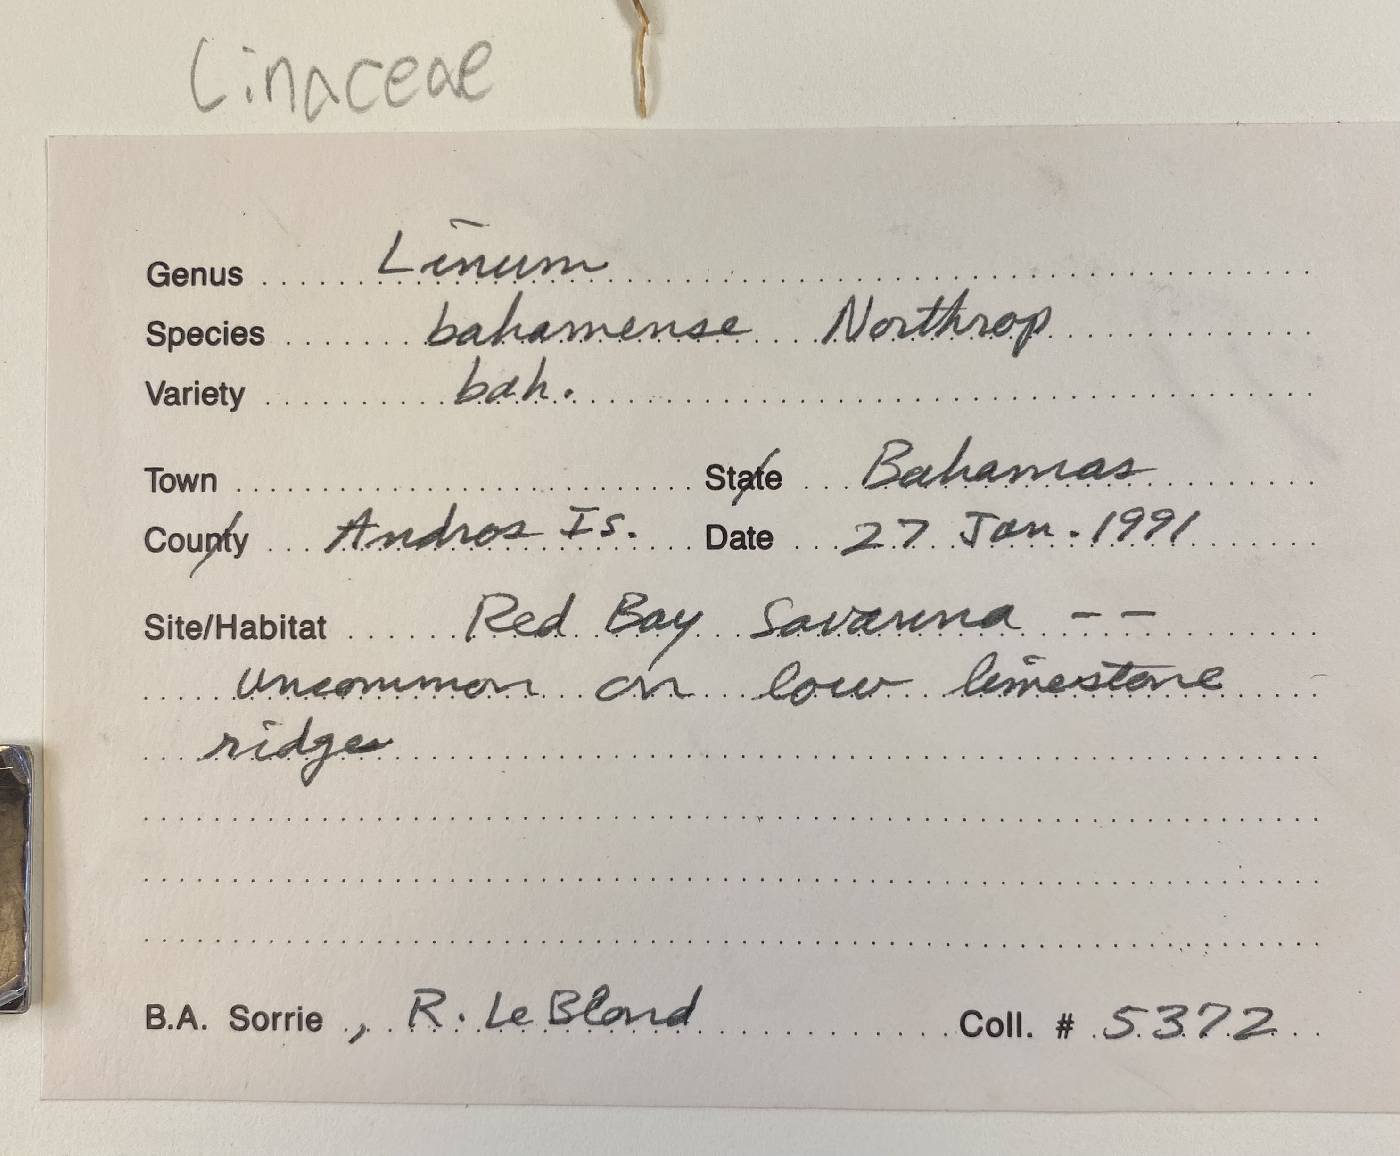 Linaceae
Genus Linum
Species bahamense Northrop
Variety bah.
Town State Bahamas
County Andros Is. Date 27 Jan. 1991
Site/Habitat Red Bay Savanna --
uncommon on low limestone
ridges
B.A. Sorrie, R. LeBlond Coll. # 5372